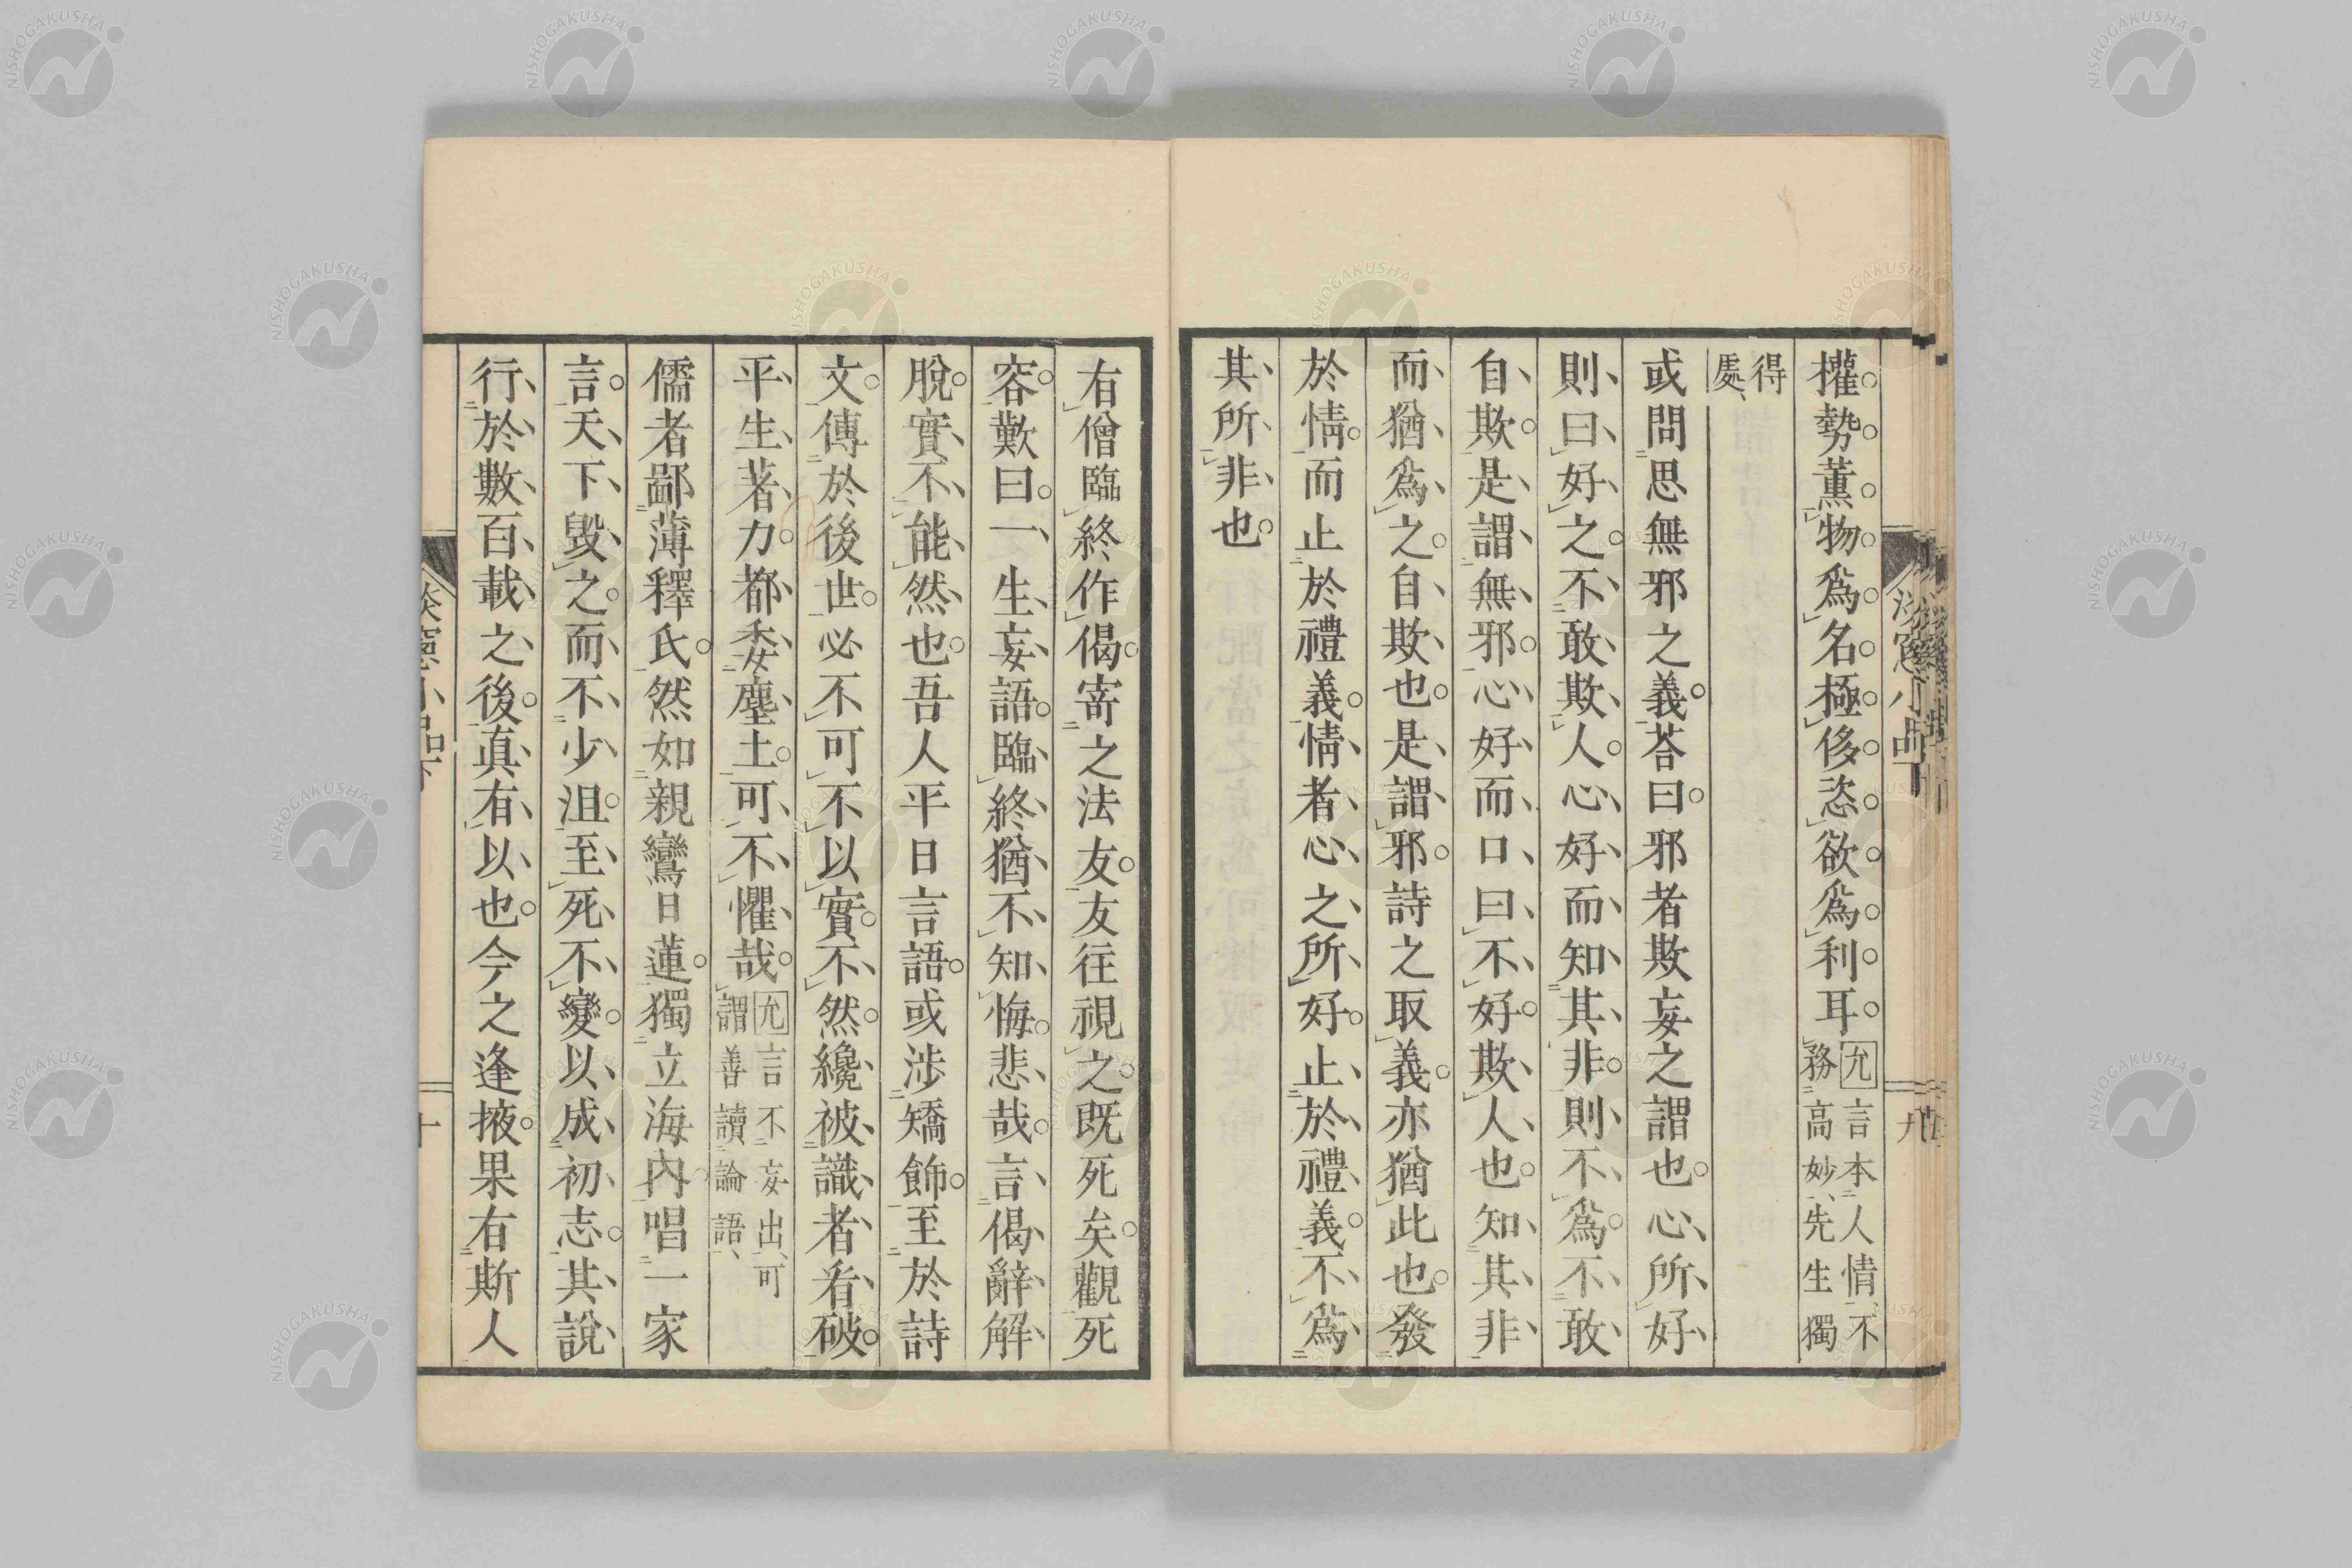 權勢薰物爲名極侈恣欲爲利耳。允言本人情、不務高妙、先生獨
得處、
或問思無邪之義。荅曰。邪者欺妄之謂也。心所好
則曰好之。不敢欺人。心好而知其非。則不爲。不敢
自欺。是謂無邪。心好而口曰不好。欺人也。知其非
而猶爲之。自欺也。是謂邪。詩之取義。亦猶此也。發
於情。而止於禮義。情者心之所好。止於禮義。不爲
其所非也。
有僧臨終作偈。寄之法友。友往視之。既死矣。觀死
容。歎曰。一生妄語。臨終猶不知悔。悲哉。言偈辭解
脫。實不能然也。吾人平日言語。或涉矯飾。至於詩
文。傳於後世。必不可不以實。不然。纔被識者看破。
平生著力。都委塵土。可不懼哉。允言不妄出、可謂善讀論語、
儒者鄙薄釋氏。然如親鸞日蓮。獨立海內。唱一家
言。天下毀之。而不少沮。至死不變。以成初志。其說
行於數百載之後。真有以也。今之逢掖。果有斯人
談窻小品下
九
談窻小品下
十
NISHOGAKUSHA